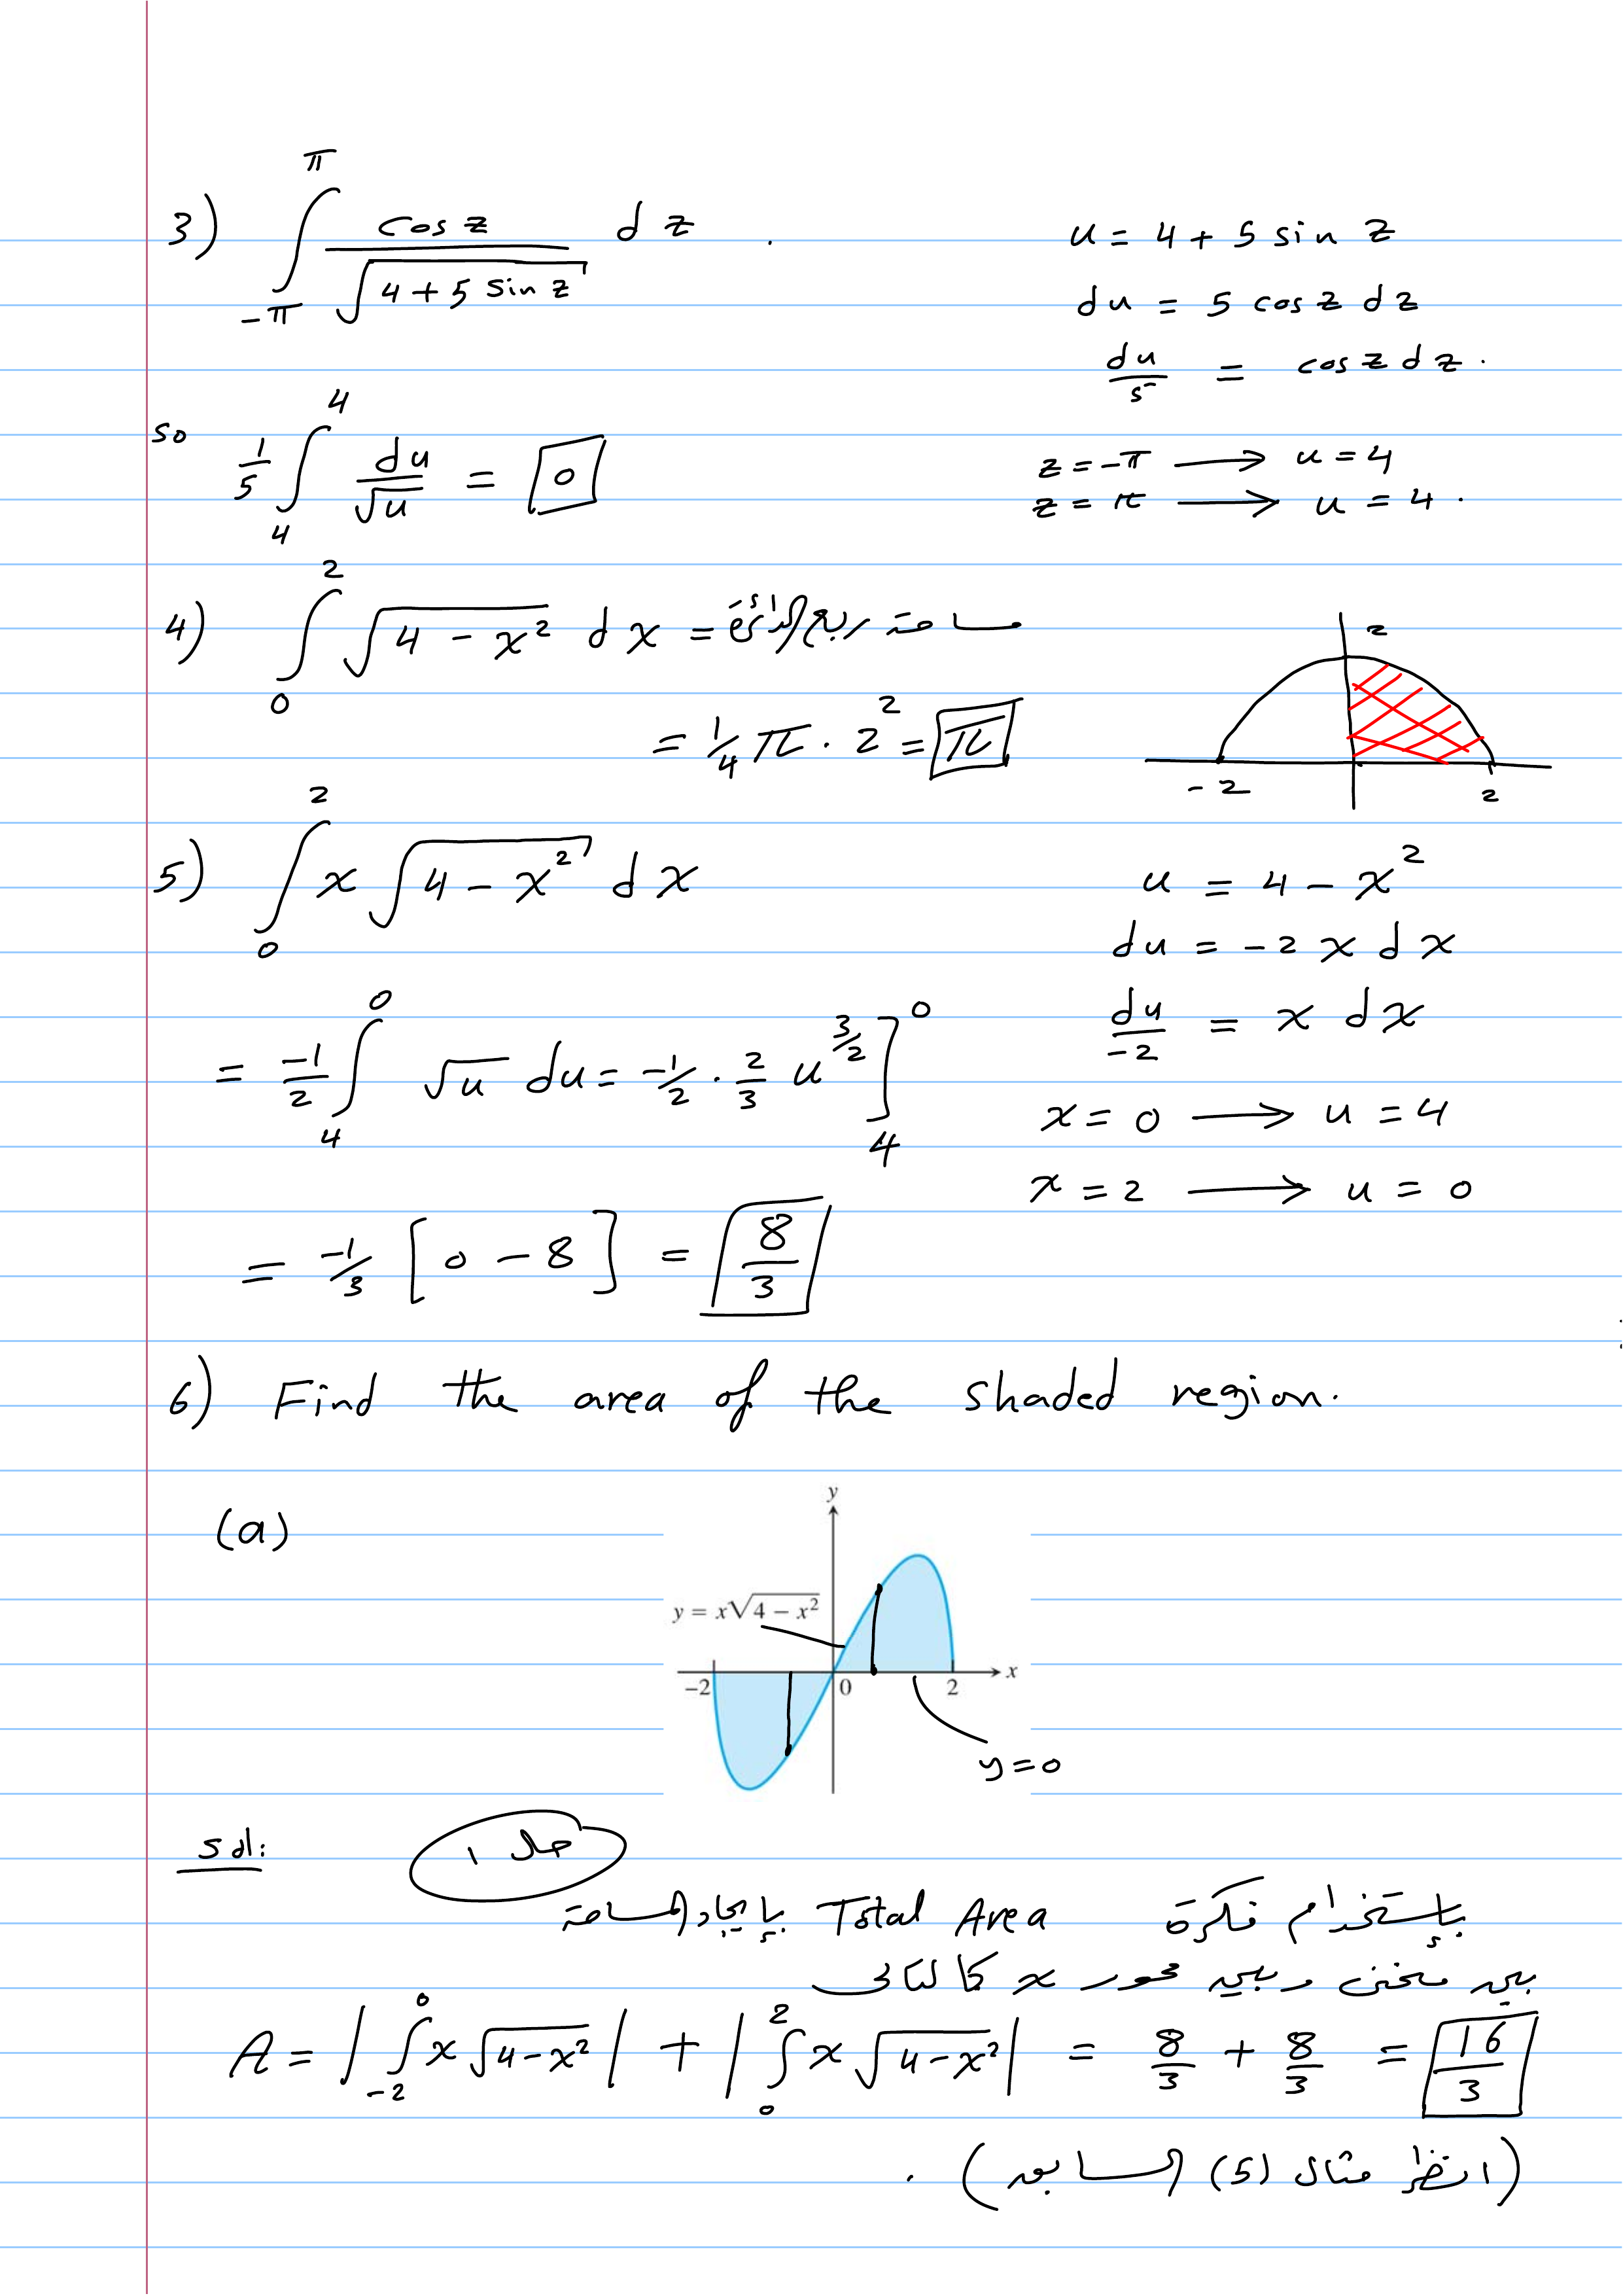 3) ∫_{-π}^{π} cos z / √(4 + 5 sin z) dz .
u = 4 + 5 sin z
du = 5 cos z dz
du/5 = cos z dz .
so 1/5 ∫_4^4 du/√u = 0
z = -π → u = 4
z = π → u = 4 .
4) ∫_0^2 √(4 - x²) dx = مساحة ربع الدائرة
= 1/4 π · 2² = π
2
-2 2
5) ∫_0^2 x √(4 - x²) dx
u = 4 - x²
du = -2 x dx
du/-2 = x dx
= -1/2 ∫_4^0 √u du = -1/2 · 2/3 u^{3/2} ]_4^0
x = 0 → u = 4
x = 2 → u = 0
= -1/3 [ 0 - 8 ] = 8/3
6) Find the area of the shaded region.
(a)
y
y = x√(4 - x²)
x
-2 0 2
y = 0
Sol:
حل ١
بإستخدام فكرة Total Area بإيجاد المساحة
بين منحنى وبين محور x كالتالي
A = | ∫_{-2}^0 x √(4-x²) | + | ∫_0^2 x √(4-x²) | = 8/3 + 8/3 = 16/3
(انظر مثال (5) السابق) .